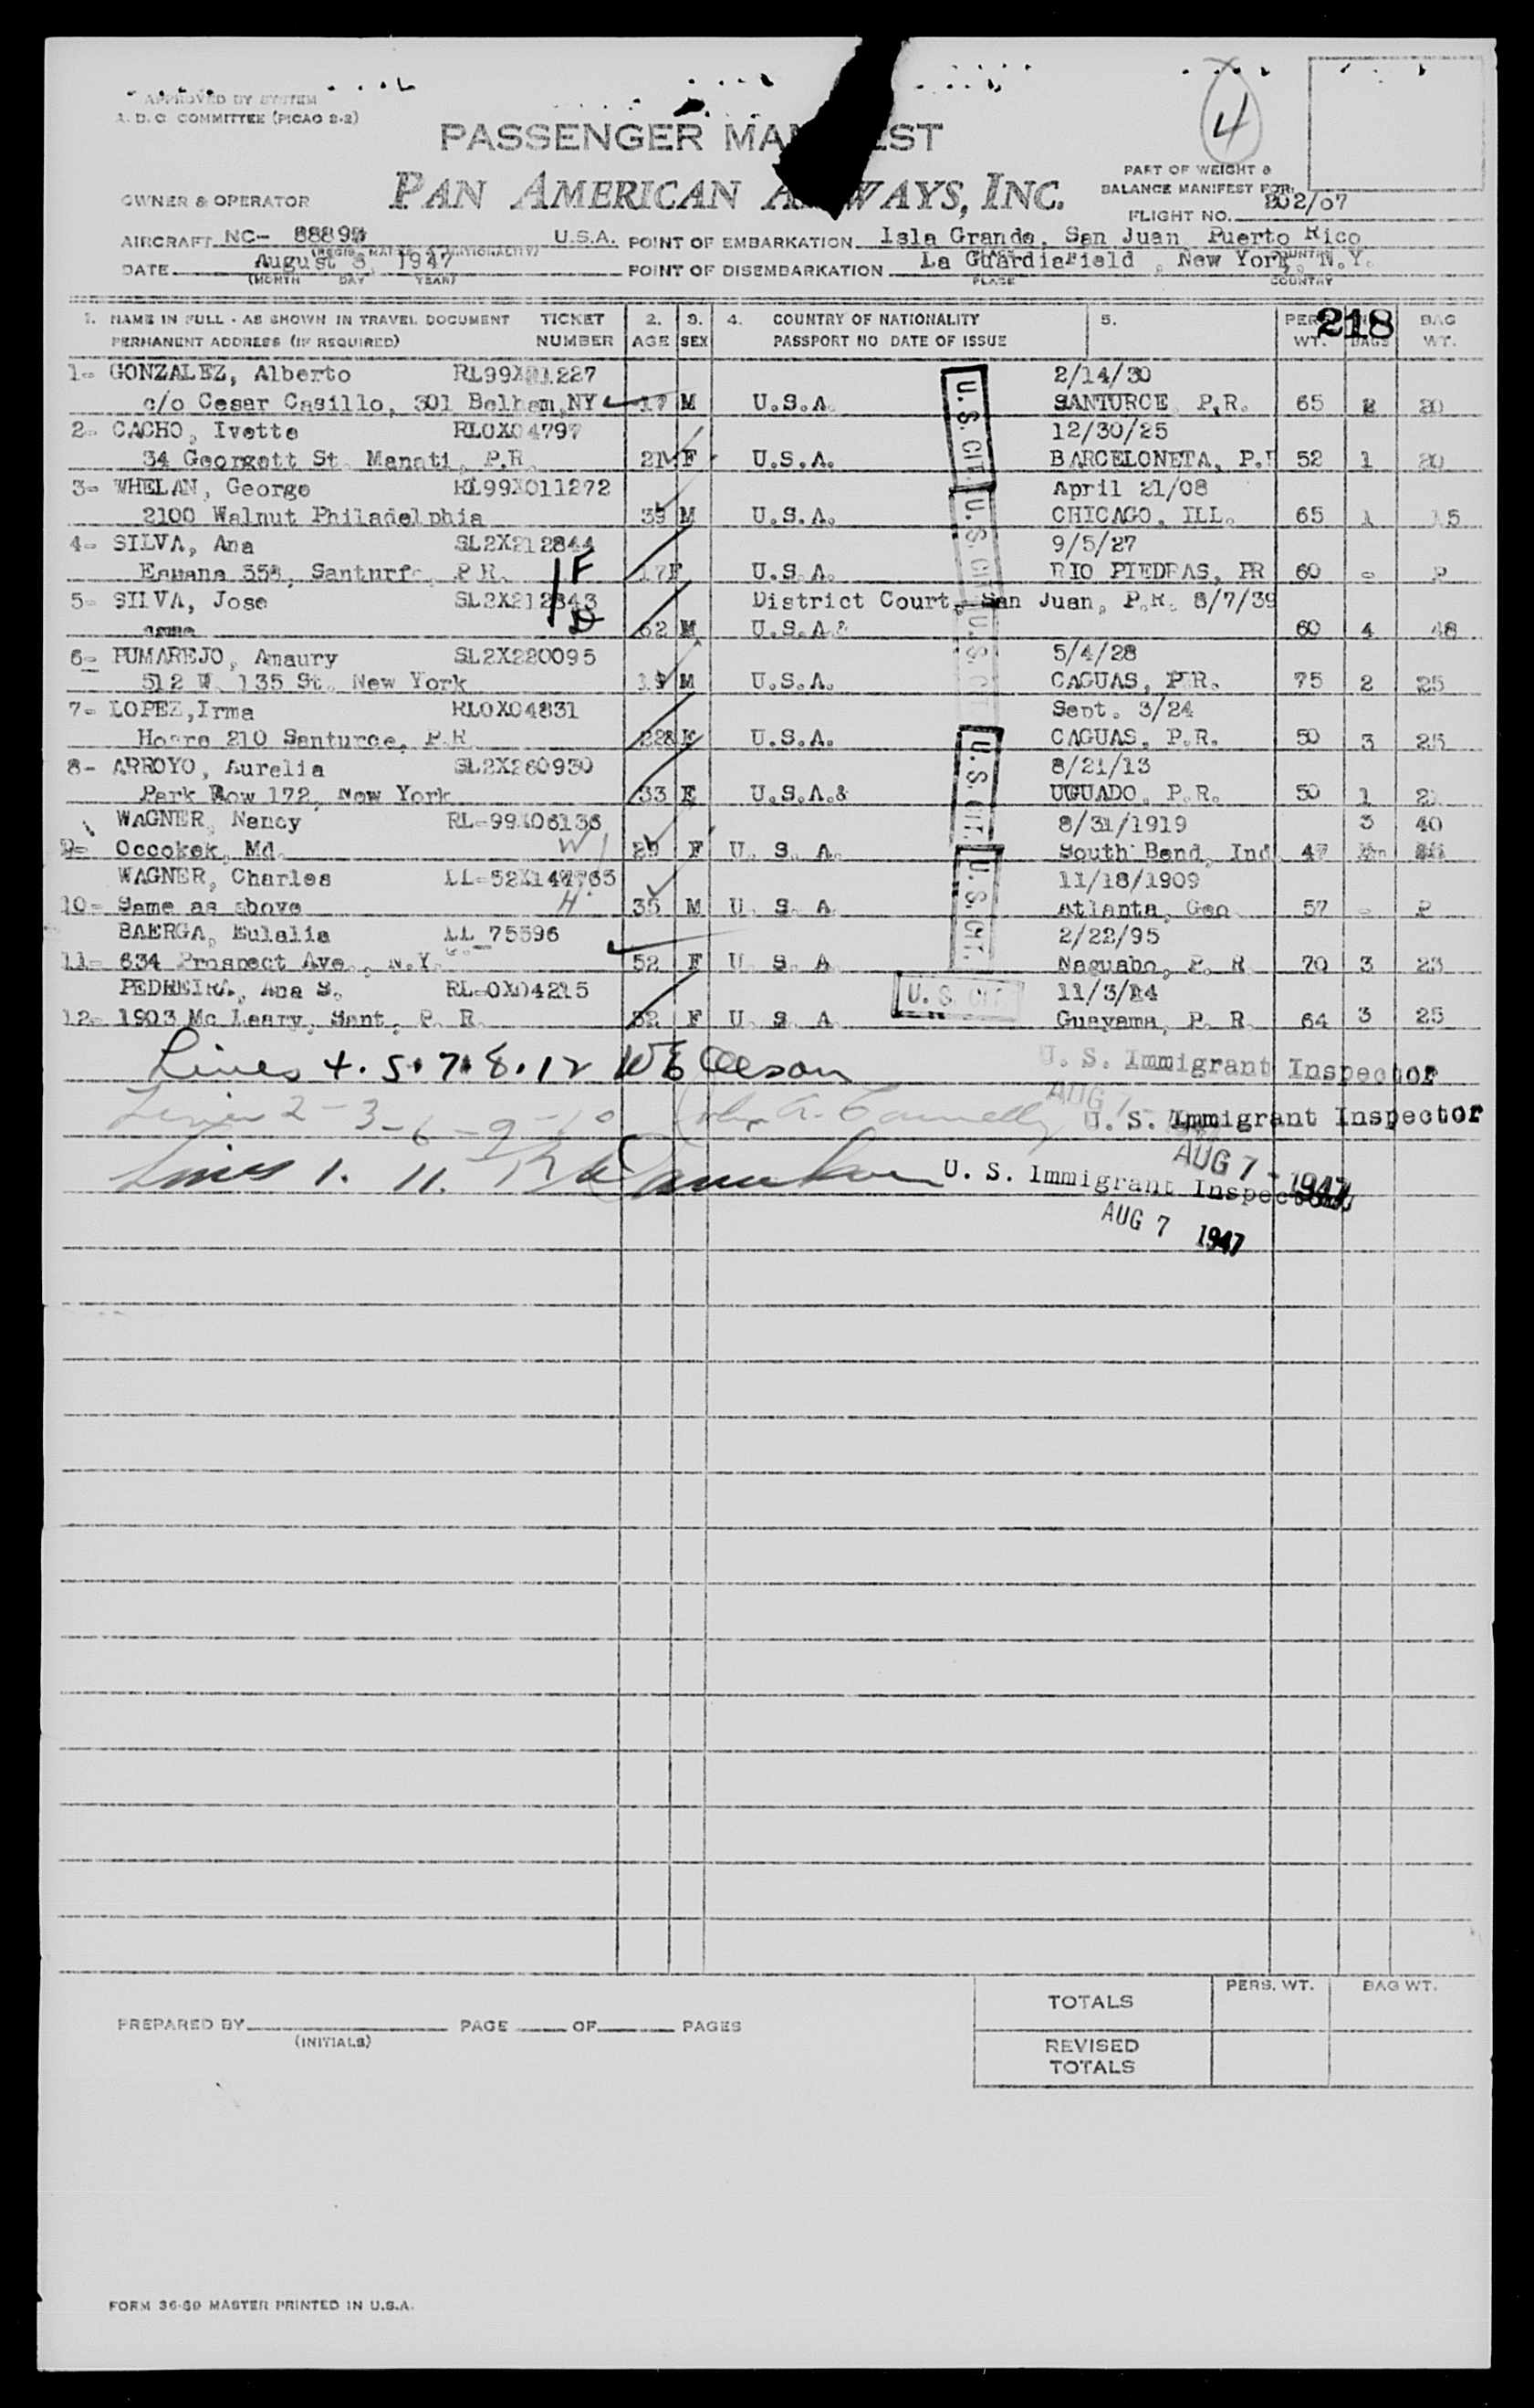 APPROVED BY SYSTEM
A. D. C COMMITTEE (PICAO 2-2)
4
PASSENGER MA EST
PAN AMERICAN A WAYS, INC.
PART OF WEIGHT &
BALANCE MANIFEST FOR:
OWNER & OPERATOR
FLIGHT NO. 202/07
AIRCRAFT NC- 8889 U.S.A. POINT OF EMBARKATION Isla Grande, San Juan Puerto Rico
DATE August 1947 POINT OF DISEMBARKATION La GuardiaField , New York, N.Y.
(MONTH DAY YEAR) PLACE COUNTRY
218
1. NAME IN FULL - AS SHOWN IN TRAVEL DOCUMENT TICKET 2. 3. 4. COUNTRY OF NATIONALITY 5. PERS. BAG
PERMANENT ADDRESS (IF REQUIRED) NUMBER AGE SEX PASSPORT NO DATE OF ISSUE WT. BAGS WT.
1- GONZALEZ, Alberto 2/14/30
c/o Cesar Casillo, 301 Belhem,NY 17 M U.S.A. SANTURCE P.R. 65 2 20
2- CACHO, Ivette RL0X04797 12/30/25
34 Georgett St. Manati, P.R. 21 F U.S.A. BARCELONETA, P. 52 1 20
3- WHELAN, George RL99X011272 April 21/08
2100 Walnut Philadelphia 39 M U.S.A. CHICAGO, ILL. 65 1 15
4- SILVA, Ana SL2X212844 9/5/27
558, P.R. 17F U.S.A. RIO PIEDRAS, PR 60 - P
1F
5- SILVA, Jose SL2X212843 District Court, San Juan, P.R. 8/7/39
1D
same 62 M U.S.A.& 60 4 48
6- PUMAREJO, Amaury SL2X220095 5/4/28
512 W. 135 St. New York 19 M U.S.A. CAGUAS, P.R. 75 2 25
7- LOPEZ,Irma RL0X04831 Sept. 3/24
210 Santurce, P.R 22 F U.S.A. CAGUAS, P.R. 50 3 25
8- ARROYO, Aurelia SL2X260930 8/21/13
Park Row 172, New York 33 F U.S.A.& UGUADO, P.R. 50 1
WAGNER, Nancy 8/31/1919 3 40
9- Occokek, Md. W F U. S. A. South Bend, Ind 47
WAGNER, Charles 11/18/1909
10- Same as above H 35 M U. S. A Atlanta, Geo 57 - P
BAERGA, Eulalia LL 75596 2/22/95
11- 634 Prospect Ave., N.Y. 52 F U. S. A Naguabo, P. R 70 3 23
PEDREIRA, Ana S. RL-0X04215 11/3/
12- 1903 Mc Leary, Sant, P. R. 32 F U. S. A Guayama, P. R 64 3 25
U. S. CIT.
U. S. CIT.
U. S. CIT.
U. S. CIT.
U. S. CIT.
U. S. CIT.
Lines 4. 5. 7. 8. 12 U. S. Immigrant Inspector
AUG 7
Lines 2-3-6-9-10 U. S. Immigrant Inspector
AUG 7 - 1947
Lines 1. 11. U. S. Immigrant Inspector
AUG 7 1947
PERS. WT. BAG WT.
TOTALS
PREPARED BY PAGE OF PAGES
(INITIALS)
REVISED
TOTALS
FORM 36-89 MASTER PRINTED IN U.S.A.